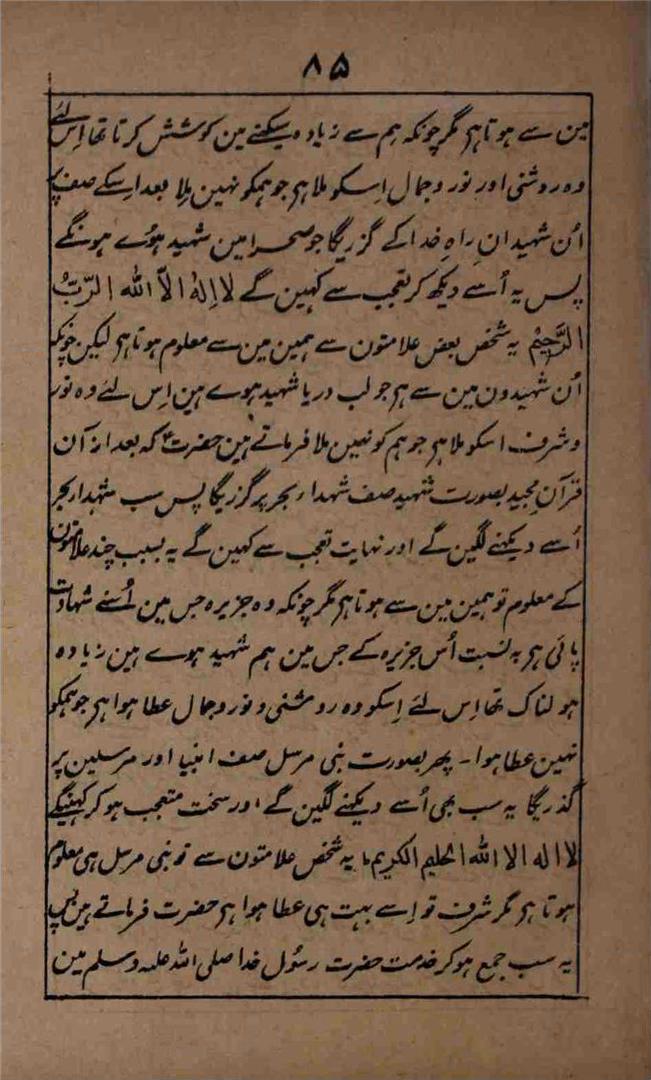 ۸۵
مین سے ہوتا ہی مگر چونکہ ہم سے زیادہ سیکھنے مین کوشش کرتا تھا اِس لئے
وہ روشنی اور نور و جمال اِسکو ملا ہی جو ہمکو نہین مِلا بعد اسکے صف پر
اُن شہیدانِ راہِ خدا کے گزریگا جو صحرا مین شہید ہوُے ہونگے
پس یہ اُسے دیکھ کر تعجب سے کہین گے لا اِلٰہ الاّ اللہ الرّبُّ
الرَّحِیْمُ یہ شخص بعض علامتون سے ہمین مین سے معلوم ہوتا ہی لیکن چونکہ
اُن شہیدون مین سے ہی جو لب دریا شہید ہوے ہین اِس لئے وہ نور
و شرف اسکو ملا ہی جو ہم کو نہین ملا فرماتے ہین حضرت ۴ کہ بعد ازان
قرآن مجید بصورت شہید صف شہداء بحر پر گزریگا پس سب شہداء بحر
اُسے دیکھنے لگین گے اور نہایت تعجب سے کہین گے یہ بسبب چند علامتون
کے معلوم تو ہمین مین سے ہوتا ہی مگر چونکہ وہ جزیرہ جس مین اُسنے شہادت
پائی ہی بہ نسبت اُس جزیرہ کے جس مین ہم شہید ہوے ہین زیادہ
ہولناک تھا اِس لئے اِسکو وہ روشنی و نور و جمال عطا ہوا ہی جو ہمکو
نہین عطا ہوا - پھر بصورت نبی مرسل صف انبیا اور مرسلین پر
گذریگا یہ سب بھی اُسے دیکھنے لگین گے اور سخت متعجب ہو کر کہینگے
لا الہ الا اللہ الحلیم الکریم یہ شخص علامتون سے تو نبی مرسل ہی معلوم
ہوتا ہی مگر شرف تو اِسے بہت ہی عطا ہوا ہی حضرت فرماتے ہین پس
یہ سب جمع ہو کر خدمت حضرت رسُول خدا صلی اللہ علیہ و سلم مین